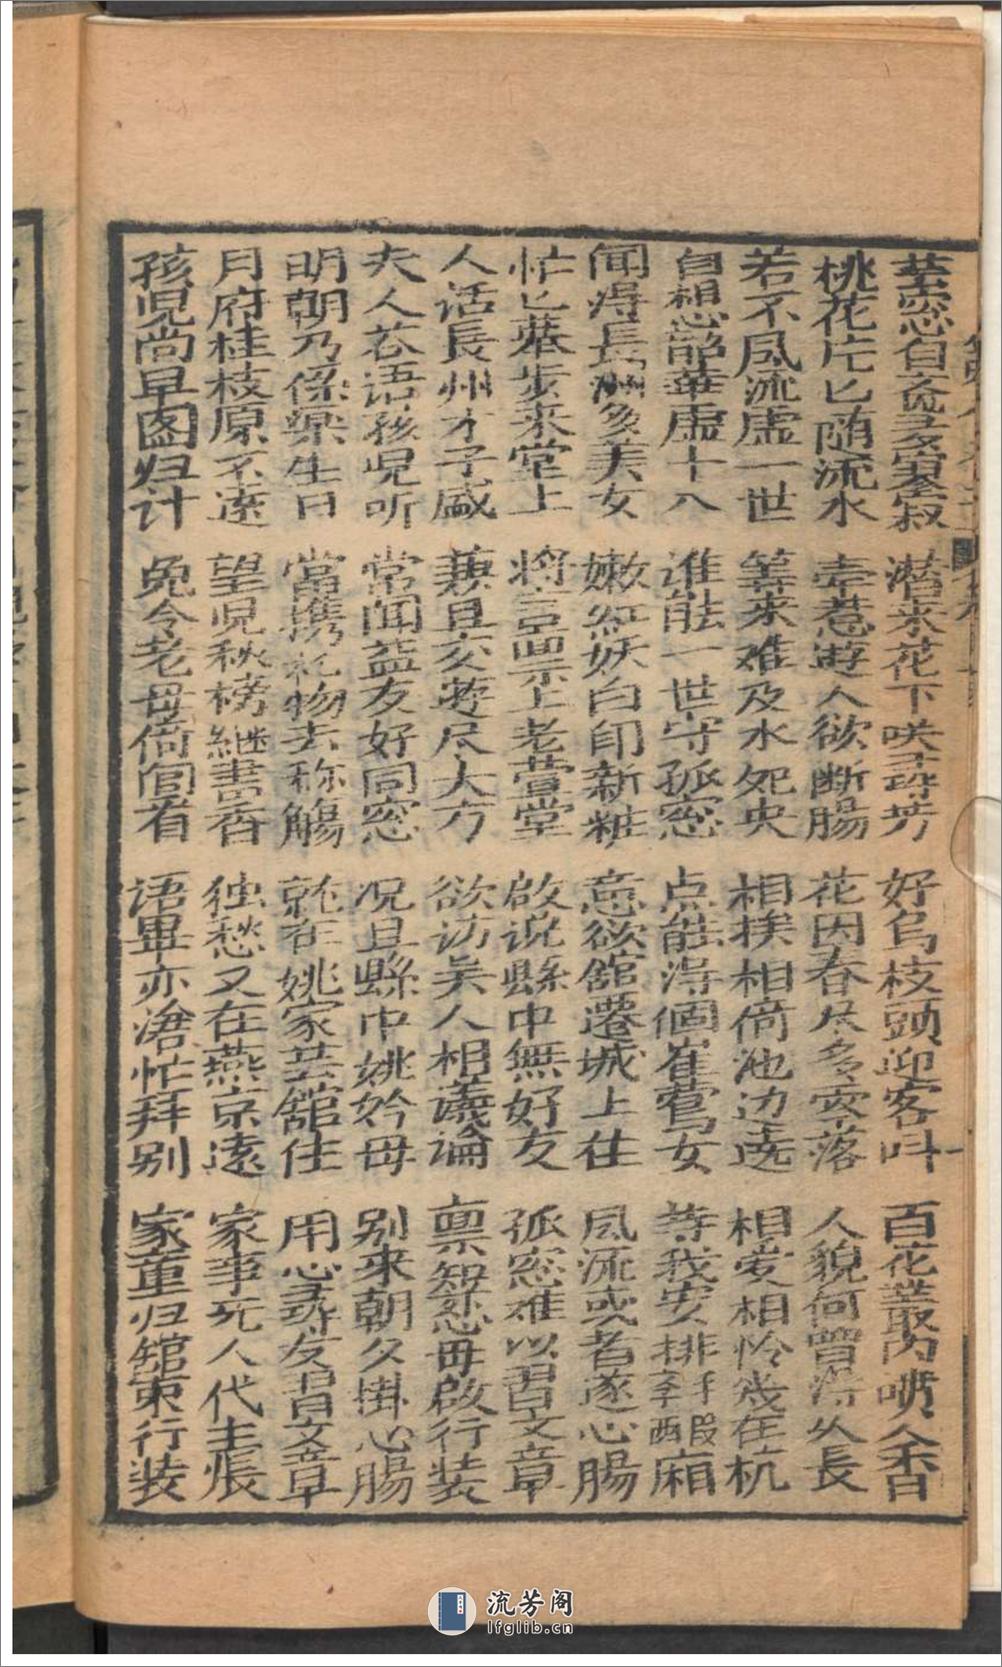 萤窓自觉多寥寂 潜来花下咲寻芳 好鸟枝頭迎客叫 百花叢内喷人香
桃花片匕随流水 牵惹遊人欲断腸 花因春尽多灾落 人貌何曾得久長
若不風流虚一世 笄来难及水夗央 相挨相倚池边遶 相爱相怜幾在杭
自想韶華虚十八 谁能一世守孤窓 点能得個崔鶯女 等我安排待西廂
聞得長洲多美女 嫩紅妖白印新粧 意欲舘遷城上住 風流或者遂心腸
忙匕莲步来堂上 将言禀上老萱堂 啟説縣中無好友 孤窓难以習文章
人话長州才子盛 兼且交游尽大方 欲访吴人相議論 禀知慈母啟行装
夫人荅语孩児听 常闻益友好同窓 况且縣中姚妗母 别来朝夕掛心腸
明朝乃係楽生日 當携礼物去称觴 就在姚家芸舘住 用心寻友習文章
月府桂枝原不遠 望児秋榜継書香 独愁又在燕京遠 家事无人代主張
孩児尚早圖归计 免令老母倚闾看 语畢亦滄忙拜别 家童归舘束行装
流芳阁
lfglib.cn